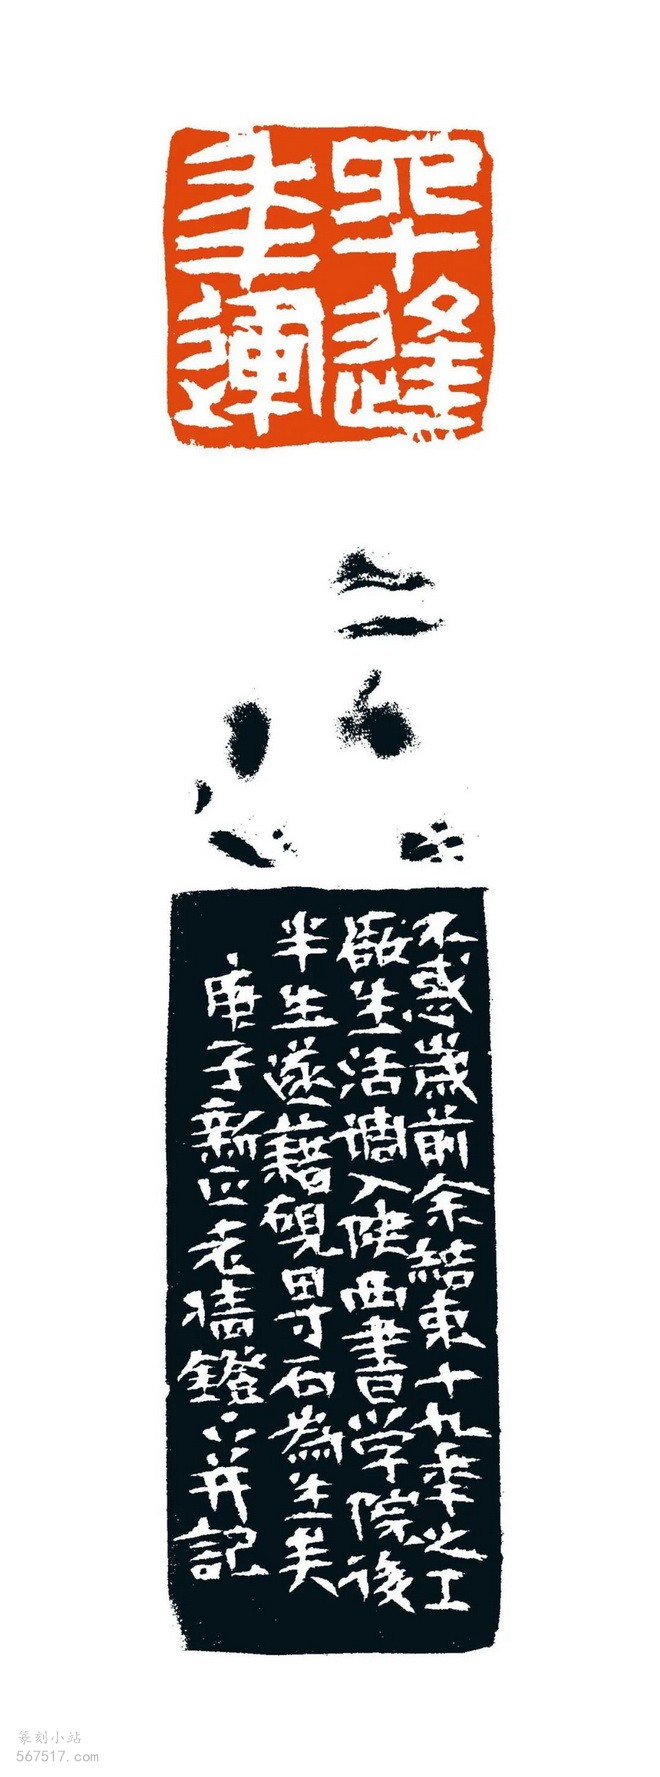 四十逢
年運
不惑歲前余結束十九年之工
厰生活調入陝西書学院後
半生遂藉硯田寸石為生矣
庚子新正老牆鐙下并記
篆刻小站
567517.com